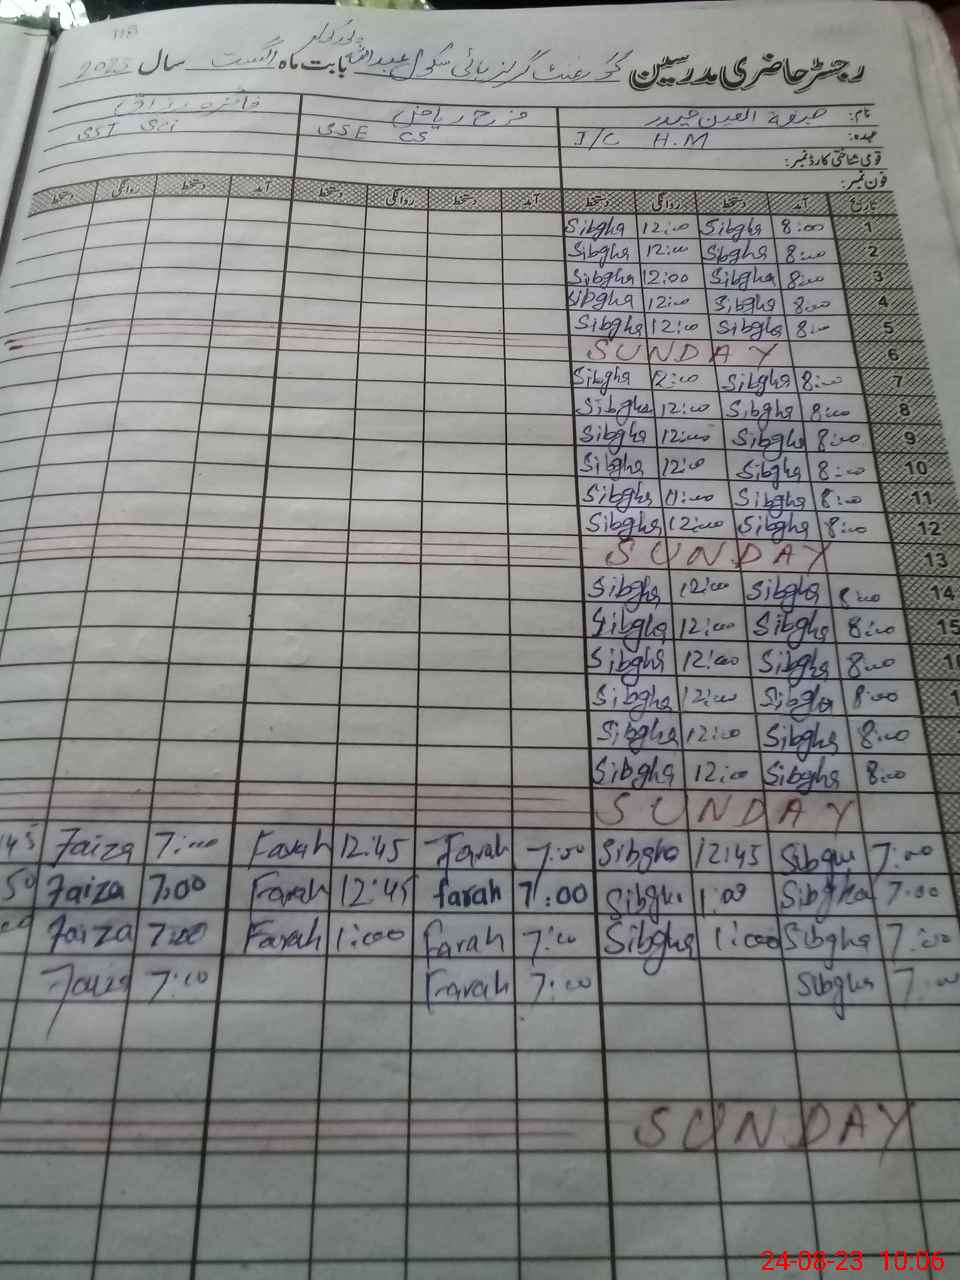 118
رجسٹر حاضری مدرسین گورنمنٹ گرلز ہائی سکول عبداللہ بابت ماہ اگست سال 2023
نام: صبغة العین حیدر فرح ریاض فائزہ رزاق
عہدہ: I/C H.M SSE CS SST Sci
قومی شناختی کارڈ نمبر:
فون نمبر:
تاریخ آمد دستخط روانگی دستخط آمد دستخط روانگی دستخط آمد دستخط روانگی دستخط
1 8:00 Sibgha 12:00 Sibgha
2 8:00 Sibgha 12:00 Sibgha
3 8:00 Sibgha 12:00 Sibgha
4 8:00 Sibgha 12:00 Sibgha
5 8:00 Sibgha 12:00 Sibgha
6 SUNDAY
7 8:00 Sibgha 12:00 Sibgha
8 8:00 Sibgha 12:00 Sibgha
9 8:00 Sibgha 12:00 Sibgha
10 8:00 Sibgha 12:00 Sibgha
11 8:00 Sibgha 11:00 Sibgha
12 8:00 Sibgha 12:00 Sibgha
13 SUNDAY
14 8:00 Sibgha 12:00 Sibgha
15 8:00 Sibgha 12:00 Sibgha
8:00 Sibgha 12:00 Sibgha
8:00 Sibgha 12:00 Sibgha
8:00 Sibgha 12:00 Sibgha
8:00 Sibgha 12:00 Sibgha
SUNDAY
7:00 Sibgha 12:45 Sibgha 7:00 Farah 12:45 Farah 7:00 Faiza
7:00 Sibgha 1:00 Sibgha 7:00 farah 12:45 Farah 7:00 Faiza
7:00 Sibgha 1:00 Sibgha 7:00 Farah 1:00 Farah 7:00 Faiza
7:00 Sibgha 7:00 Farah 7:00 Faiza
SUNDAY
24-08-23 10:06